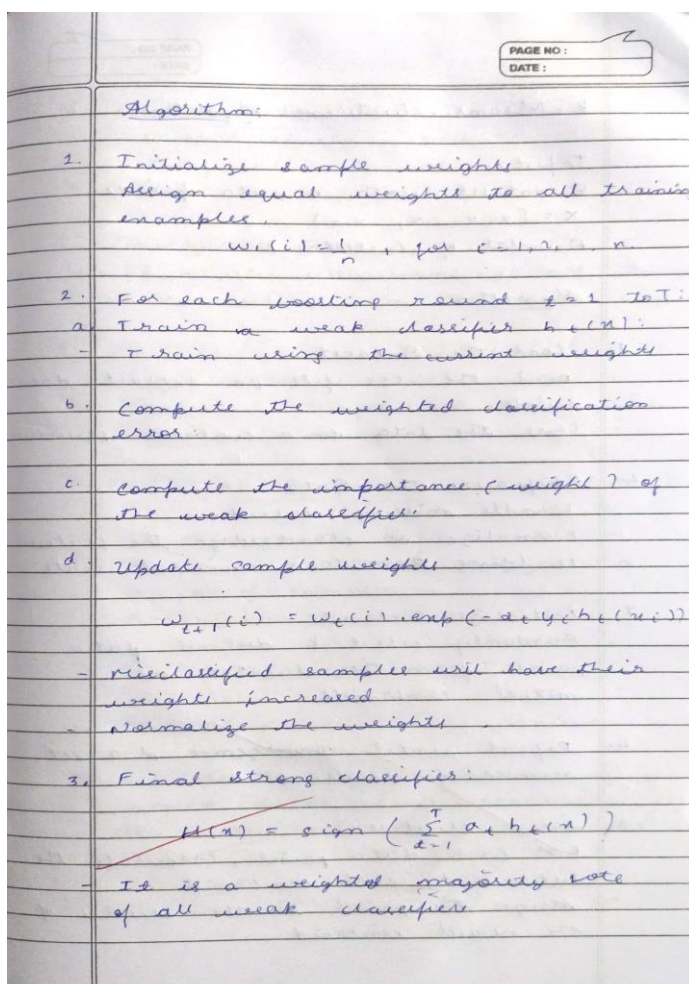 PAGE NO :
DATE :
Algorithm:
1. Initialize sample weights
Assign equal weights to all training
examples.
w₁(i) = 1/n , for i = 1, 2, . . n.
2. For each boosting round t = 1 to T:
a. Train a weak classifier hₜ(x):
- Train using the current weights
b. Compute the weighted classification
error.
c. Compute the importance (weight) of
the weak classifier.
d. Update sample weights
wₜ₊₁(i) = wₜ(i) . exp(-αₜ yᵢ hₜ(xᵢ))
- Misclassified samples will have their
weights increased
- Normalize the weights.
3. Final strong classifier:
H(x) = sign ( T Σ t=1 αₜ hₜ(x) )
- It is a weighted majority vote
of all weak classifiers